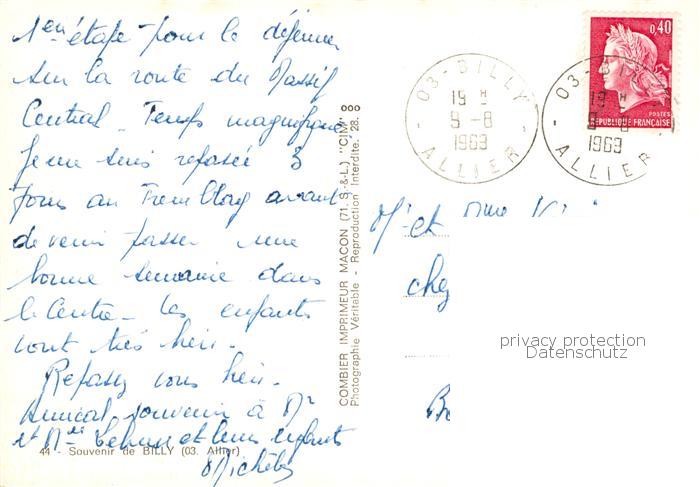 1ère étape pour le déjeuner
sur la route du Massif
Central. Temps magnifique
Je me suis reposée 3
jours au Tremblay avant
de venir passer une
bonne semaine dans
le Centre. les enfants
vont très bien.
Reposez vous bien.
Amical souvenir à Mr
et Mme et leurs enfants
44 - Souvenir de BILLY (03. Allier)
COMBIER IMPRIMEUR MACON (71. S.-&-L.) "CIM"
Photographie Véritable - Reproduction Interdite. 28.
03 - BILLY
19 H
9 - 8
1969
ALLIER
03 - BILLY
19 H
9 - 8
1969
ALLIER
0,40
POSTES
REPUBLIQUE FRANÇAISE
Mr et Mme
chez
privacy protection
Datenschutz